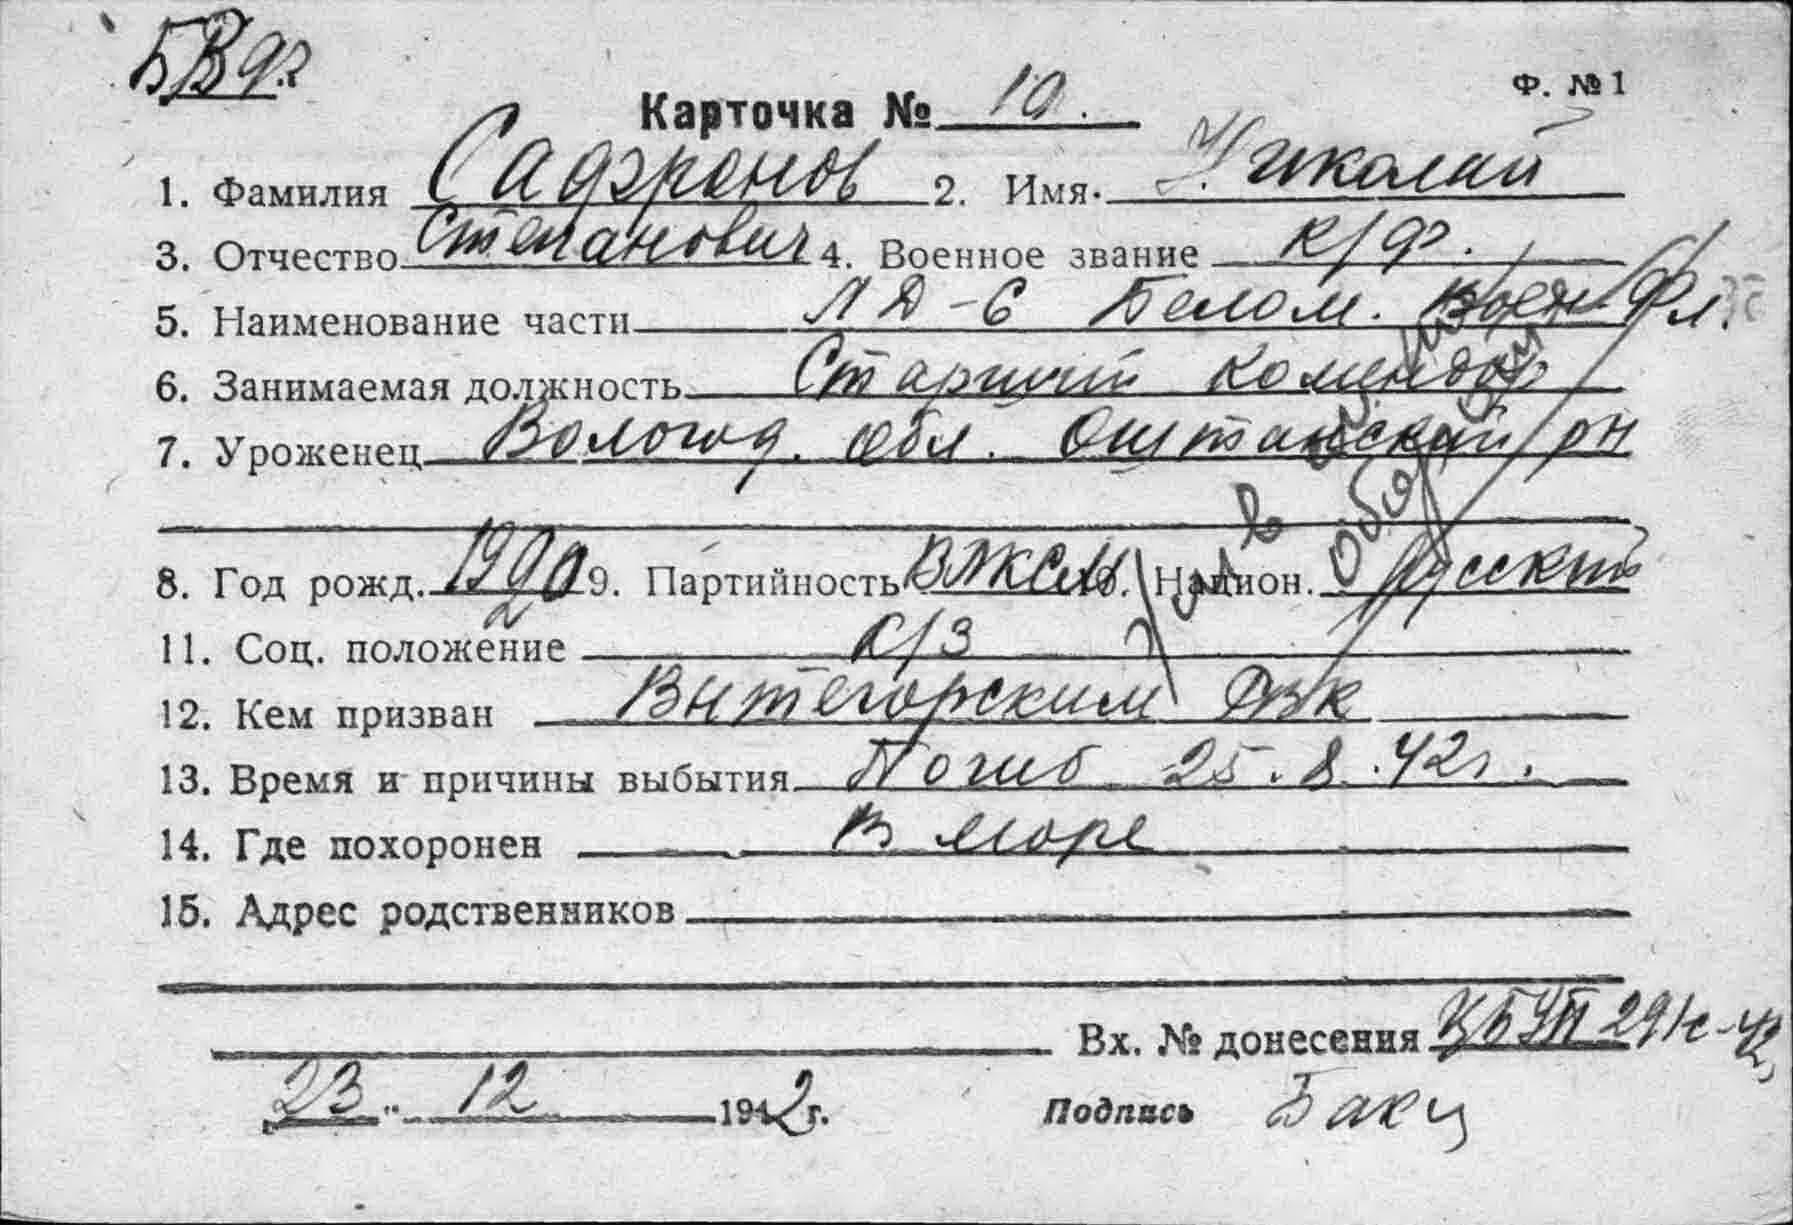 БВФ
Ф. № 1
Карточка № 10.
1. Фамилия Сафронов 2. Имя Николай
3. Отчество Степанович 4. Военное звание к/ф.
5. Наименование части ЛД-6 Белом. Воен. Фл.
6. Занимаемая должность Старший комендор
7. Уроженец Вологод. обл. Оштинский р/н
8. Год рожд. 1920 9. Партийность ВЛКСМ 10. Национ. Русский
11. Соц. положение к/з
12. Кем призван Вытегорским РВК
13. Время и причины выбытия Погиб 25.8.42г.
14. Где похоронен В море
15. Адрес родственников
Вх. № донесения 291с-42
23 " 12 1942 г. Подпись